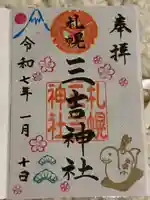 奉拝
札幌
三吉神社
令和七年一月十日